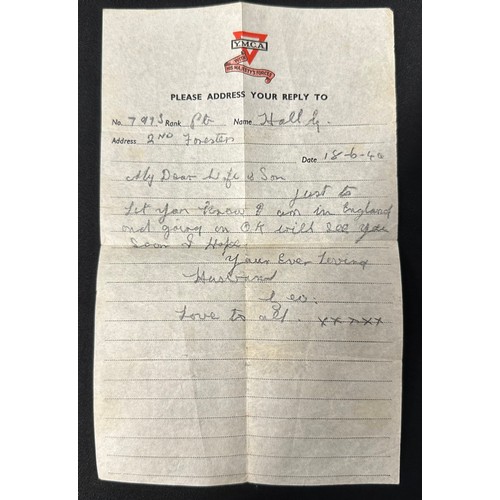 Y.M.C.A
WITH
HIS MAJESTY'S FORCES
PLEASE ADDRESS YOUR REPLY TO
No. Rank Pte Name Hall G.
Address 2ND Foresters
Date 18-6-40
My Dear Wife & Son
Just to
Let You Know I am in England
and going on OK will see you
Soon I Hope
Your Ever Loving
Husband
Geo.
Love to all. xxxxx